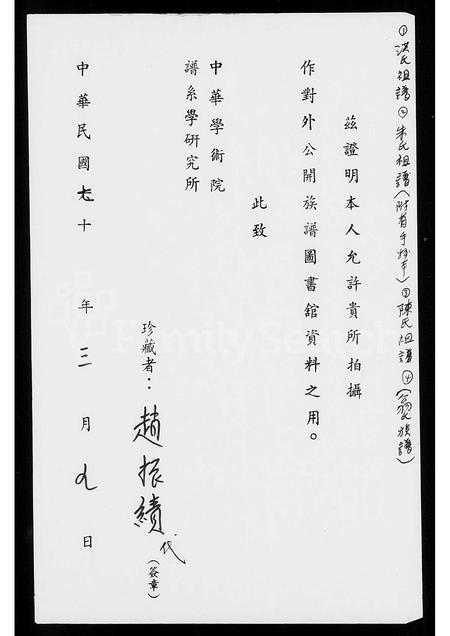 ①洪氏祖譜②朱氏祖譜(附有手抄本)③陳氏祖譜④(翁氏族譜)
茲證明本人允許貴所拍攝
作對外公開族譜圖書舘資料之用。
此致
中華學術院
譜系學研究所
珍藏者：趙振績代(簽章)
中華民國七十年三月九日
FamilySearch